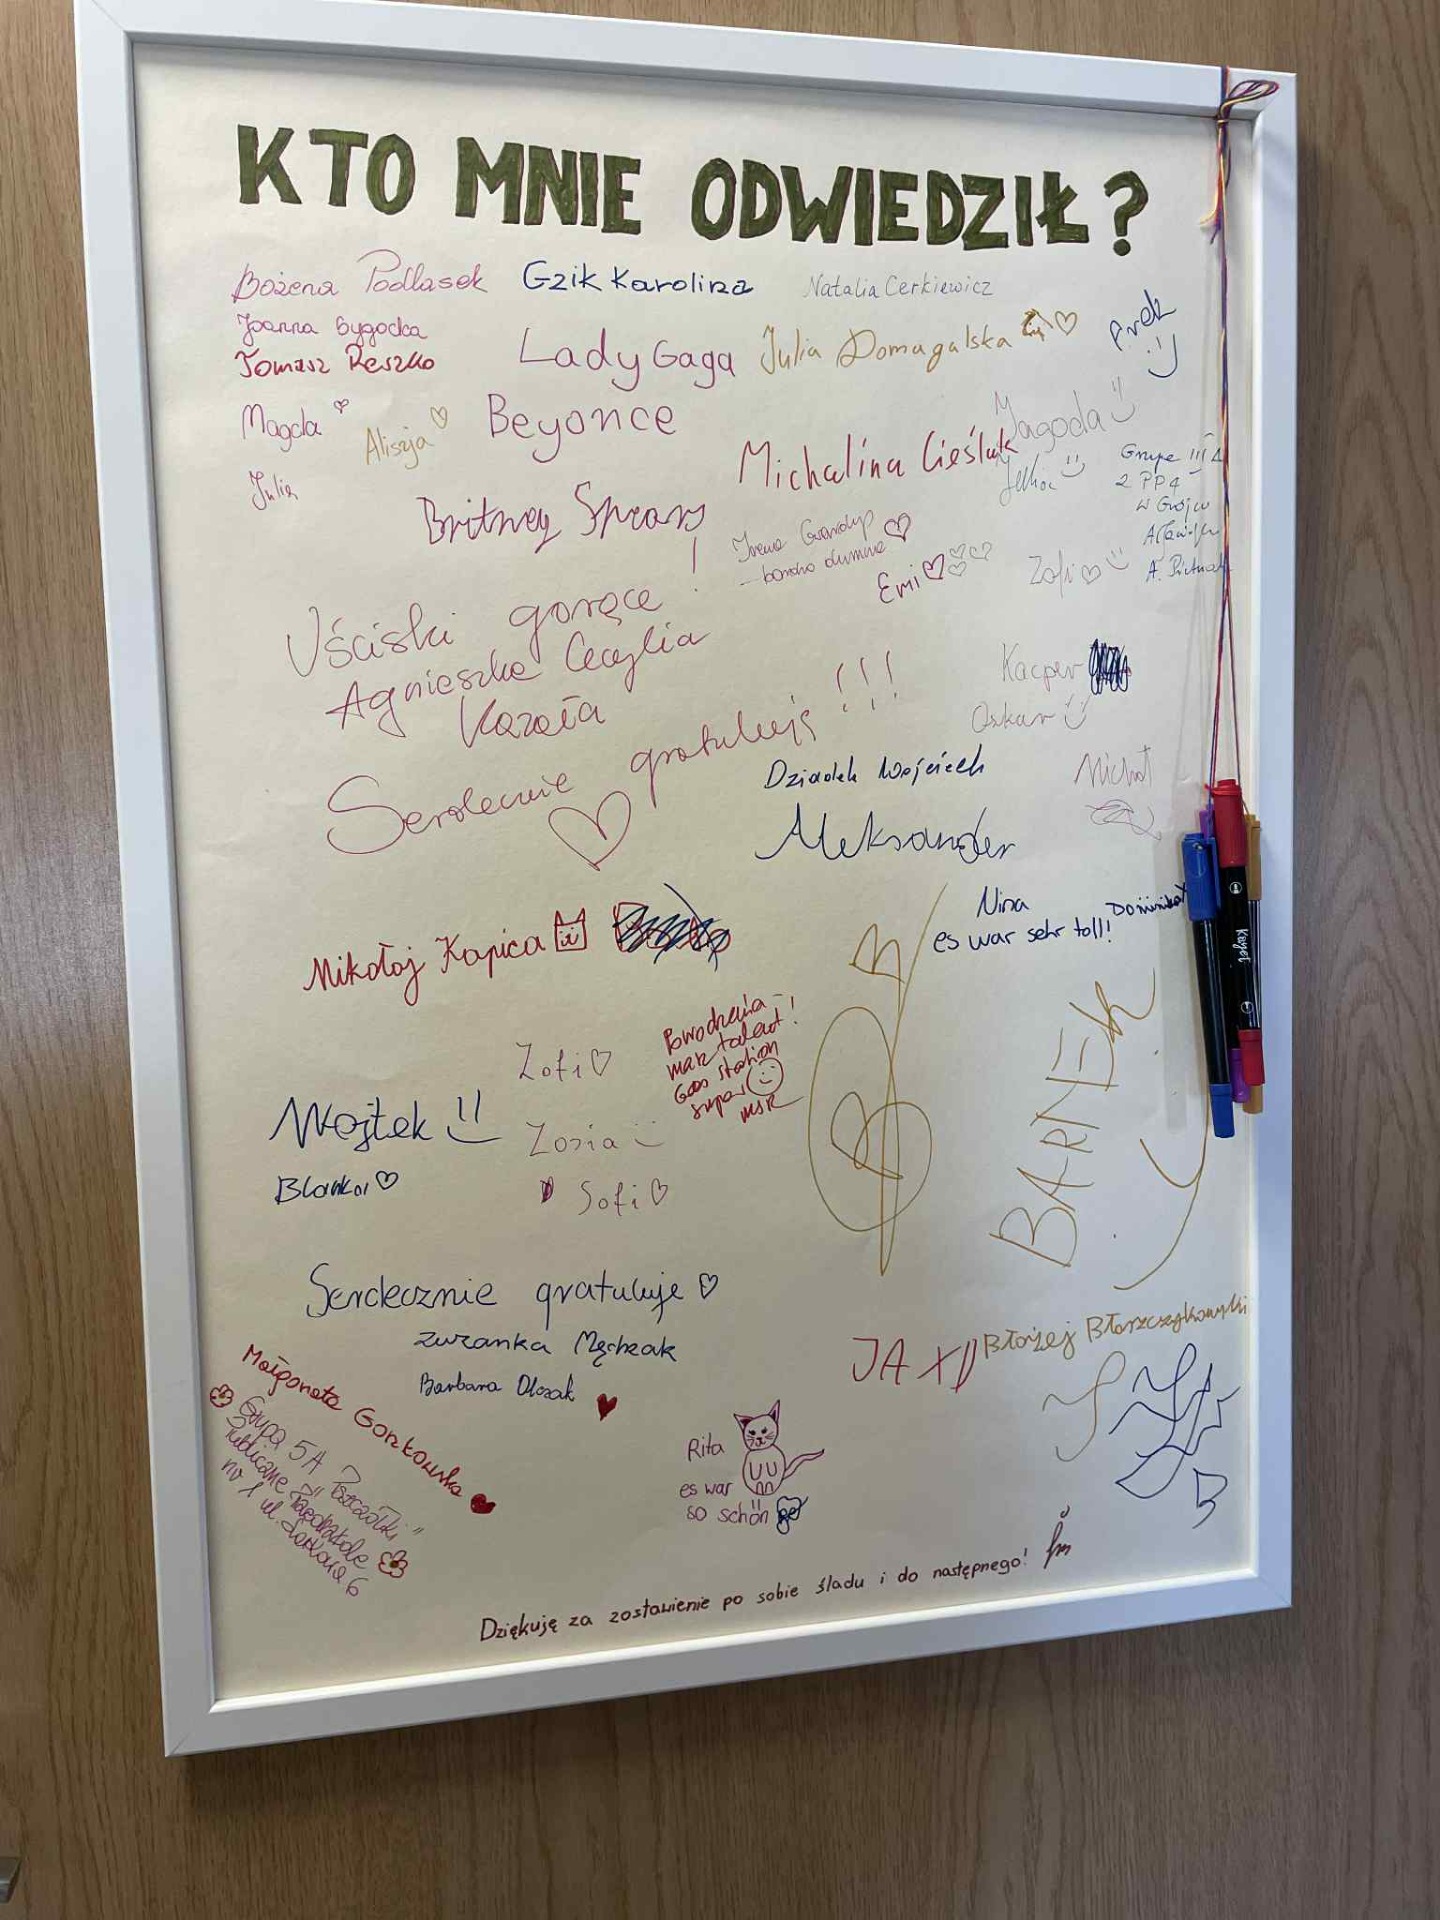 KTO MNIE ODWIEDZIŁ?
Bożena Podlasek
Gzik Karolina
Natalia Cerkiewicz
Joanna Gygocka
Tomasz Reszko
Lady Gaga
Julia Domagalska
Arek
Magda
Alicja
Beyonce
Michalina Cieślak
Jagoda
Julia
Julka
Grupa III
2 PP4
Britney Spears
Irena
– bardzo dumna
Emi
Zofi
A.
Uściski gorące!
Agnieszka Cecylia
Kozoła
Serdecznie gratuluję!!!
Kacper
Oskar
Michał
Dziadek Wojciech
Aleksander
Nina
es war sehr toll!
Dominika
Mikołaj Kapica
Zofi
Powodzenia –
masz talent!
Gas station
super
MSK
BARNEK
Wojtek
Zosia
Blanka
Sofi
Serdecznie gratuluję
Zuzanka Męchrak
Barbara Olczak
JA XD
Błażej Błaszczykowski
Małgorzata Gorzkowska
Grupa 5A "Pszczółki"
Publiczne Przedszkole
nr 1 ul. 6
Rita
es war
so schön
Dziękuję za zostawienie po sobie śladu i do następnego!